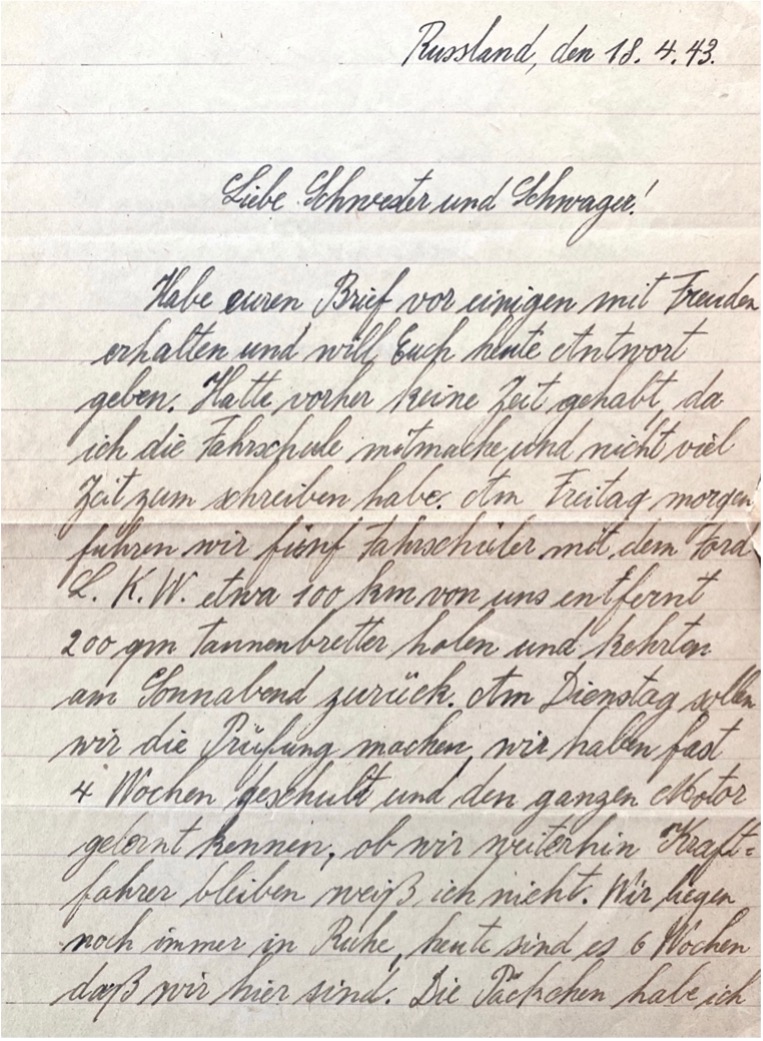 Russland, den 18.4.43.
Liebe Schwester und Schwager!
Habe euren Brief vor einigen mit Freuden
erhalten und will Euch heute Antwort
geben. Hatte vorher keine Zeit gehabt, da
ich die Fahrschule mitmache und nicht viel
Zeit zum schreiben habe. Am Freitag morgen
fuhren wir fünf Fahrschüler mit dem Ford
L.K.W. etwa 100 km von uns entfernt
200 qm Tannenbretter holen und kehrten
am Sonnabend zurück. Am Dienstag sollen
wir die Prüfung machen, wir haben fast
4 Wochen geschult und den ganzen Motor
gelernt kennen, ob wir weiterhin Kraft=
fahrer bleiben weiß ich nicht. Wir liegen
noch immer in Ruhe, heute sind es 6 Wochen
daß wir hier sind. Die Päckchen habe ich